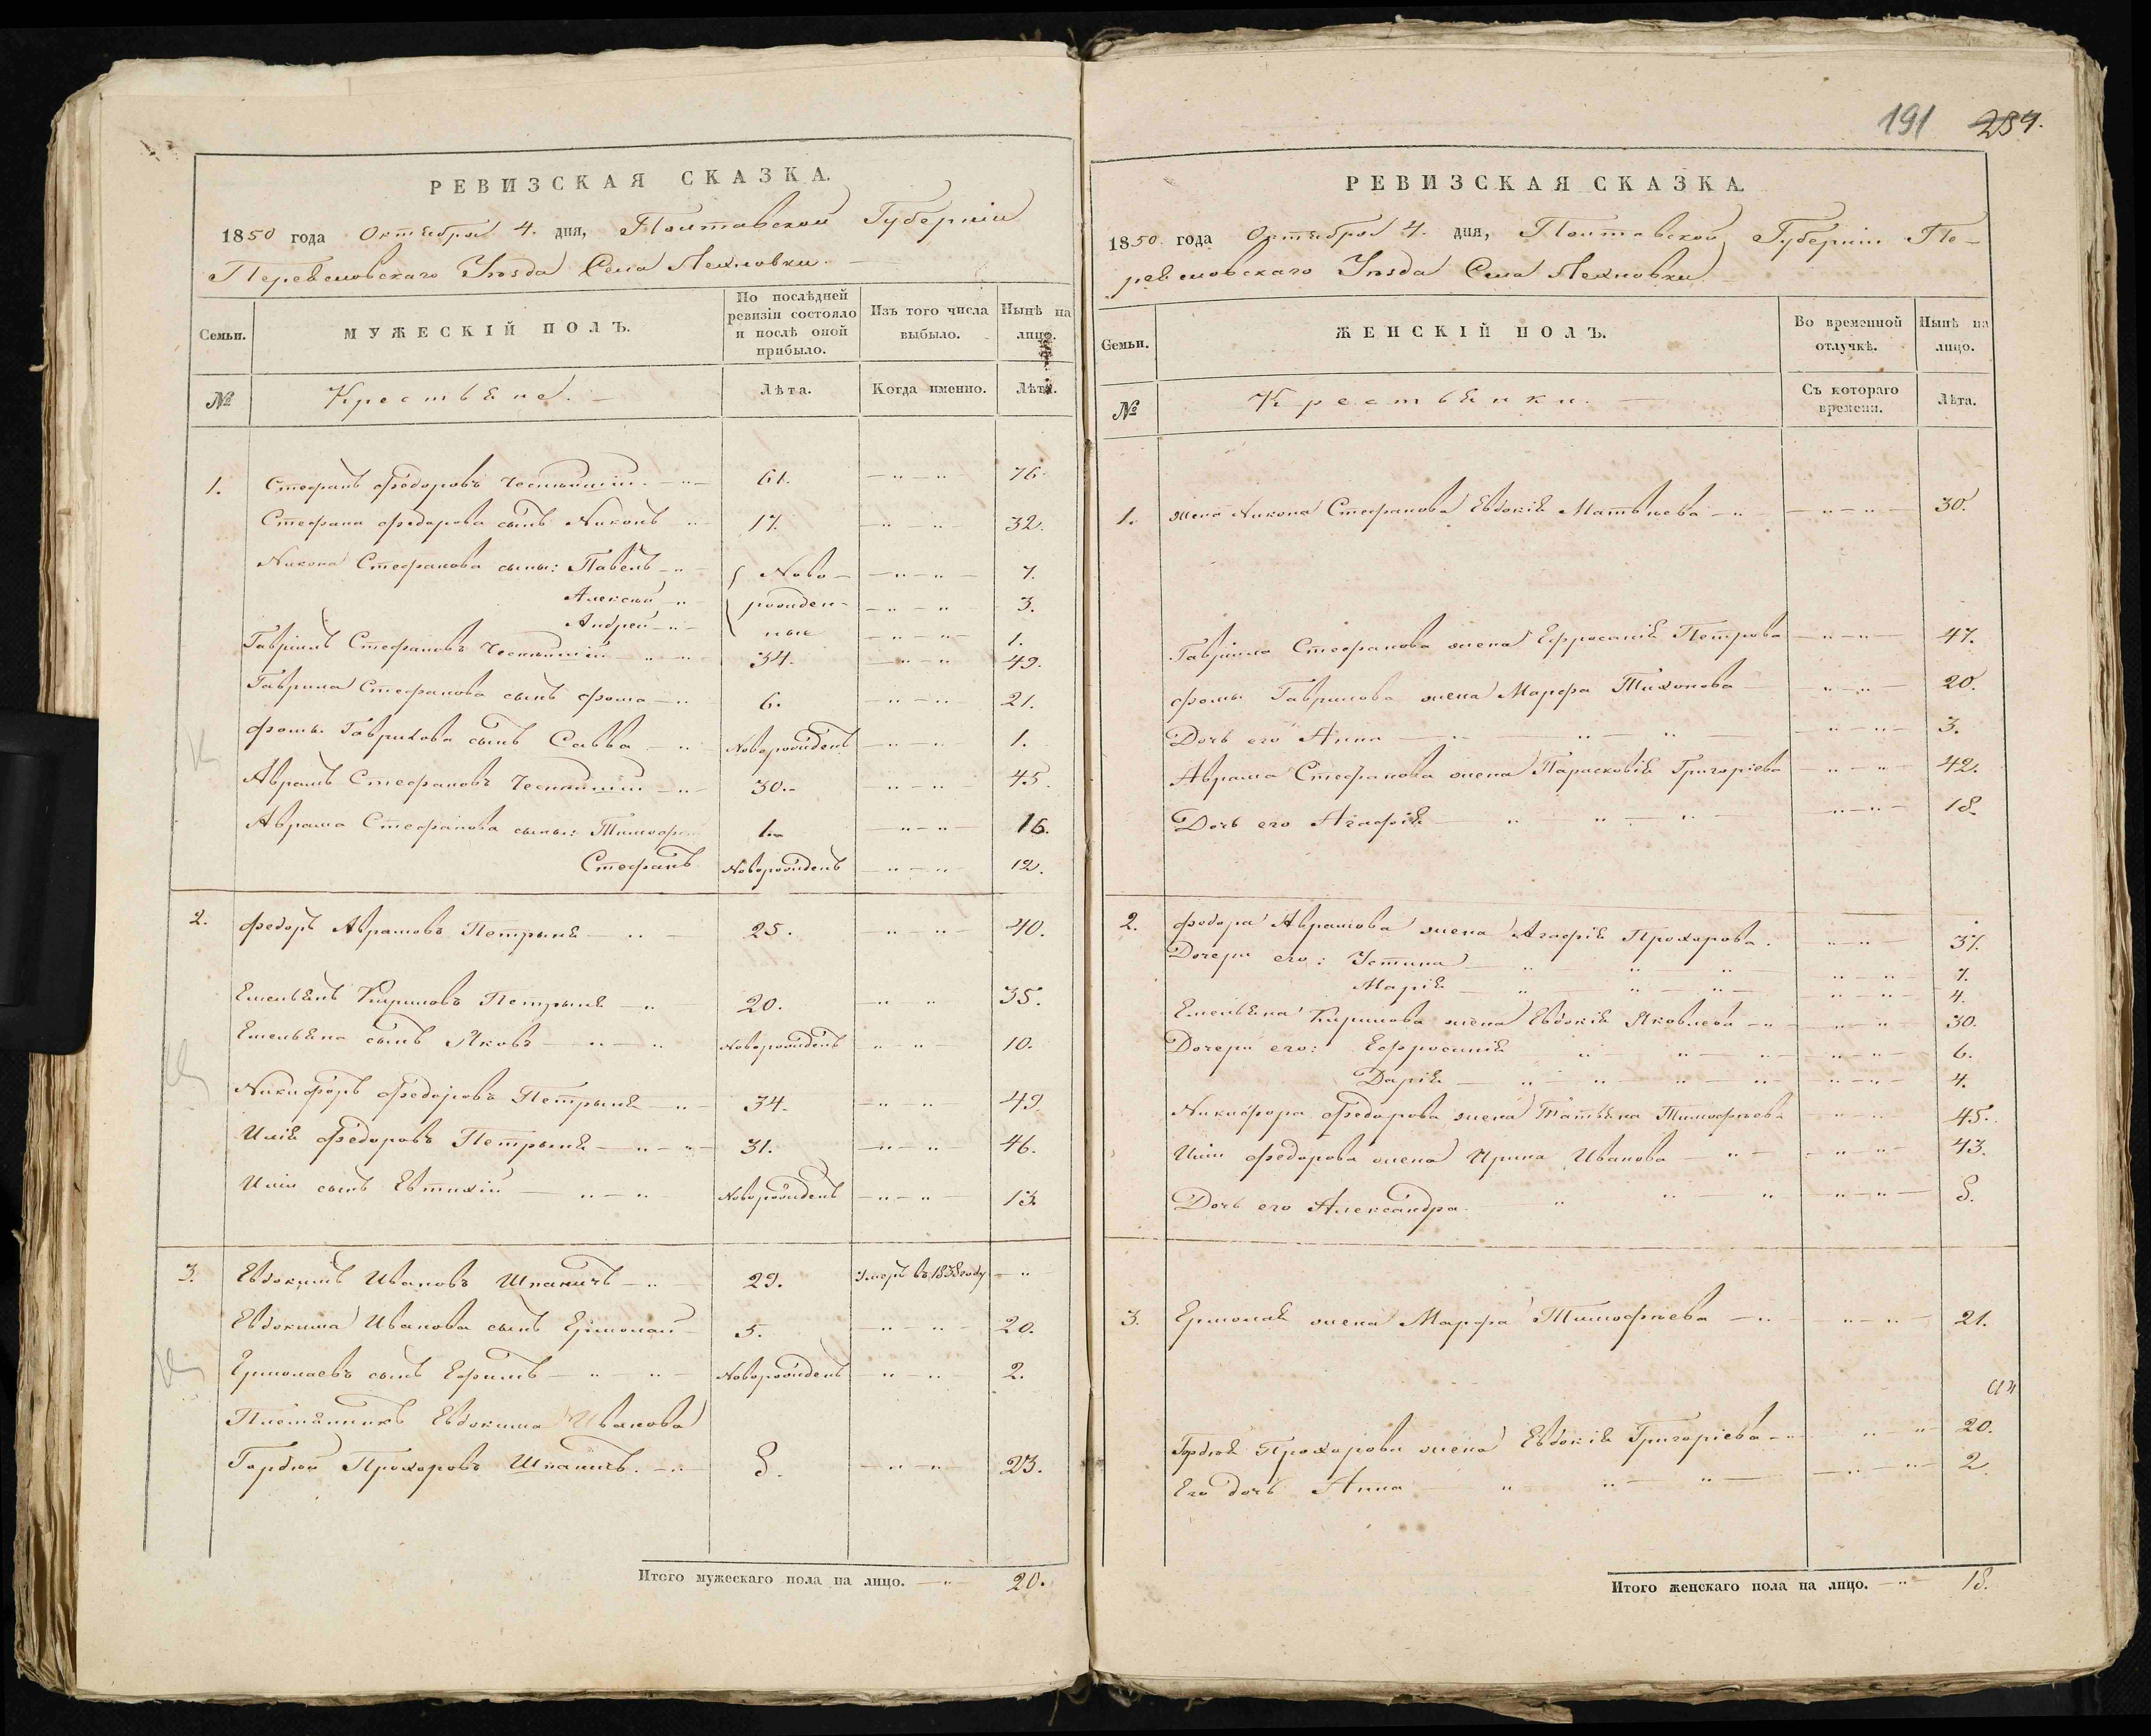 191 284.
РЕВИЗСКАЯ СКАЗКА.
1850 года Октября 4. дня, Полтавской Губерніи
Переясловскаго Уѣзда Села Лехновки.
Семьи.
МУЖЕСКІЙ ПОЛЪ.
По послѣдней ревизіи состояло и послѣ оной прибыло.
Изъ того числа выбыло.
Нынѣ на лицо.
№
Крестьяне.
Лѣта.
Когда именно.
Лѣта.
1. Стефанъ Федоровъ 61. 76.
Стефана Федорова сынъ Никонъ 17. 32.
Никона Стефанова сыны: Павелъ Ново- 7.
Алексѣй рожден- 3.
Андрей ные 1.
Гавріилъ Стефановъ 34. 49.
Гаврила Стефанова сынъ Фома 6. 21.
Фомы Гаврилова сынъ Савва Новорожденъ 1.
Аврамъ Стефановъ 30. 45.
Аврама Стефанова сыны: Тимофей 1. 16.
Стефанъ Новорожденъ 12.
2. Федоръ Аврамовъ Петрыня 25. 40.
Емельянъ Кириловъ Петрыня 20. 35.
Емельяна сынъ Яковъ Новорожденъ 10.
Никифоръ Федоровъ Петрыня 34. 49.
Илія Федоровъ Петрыня 31. 46.
Иліи сынъ Евтихій Новорожденъ 13.
3. Евдокимъ Ивановъ Шпаничъ 29. Умеръ въ 1838 году
Евдокима Иванова сынъ Ермолай 5. 20.
Ермолаевъ сынъ Ефимъ Новорожденъ 2.
Племянникъ Евдокима Иванова
Гордѣй Прохоровъ Шпаничъ. 8. 23.
Итого мужескаго пола на лицо. 20.
РЕВИЗСКАЯ СКАЗКА.
1850 года Октября 4. дня, Полтавской Губерніи Пе-
реясловскаго Уѣзда Села Лехновки
Семьи.
ЖЕНСКІЙ ПОЛЪ.
Во временной отлучкѣ.
Нынѣ на лицо.
№
Крестьянки.
Съ котораго времени.
Лѣта.
1. жена Никона Стефанова Евдокія Матвѣева 30.
Гавріила Стефанова жена Ефросинія Петрова 47.
Фомы Гаврилова жена Марфа Тихонова 20.
Дочь его Анна 3.
Аврама Стефанова жена Парасковія Григоріева 42.
Дочь его Агафія 18.
2. Федора Аврамова жена Агафія Прохорова. 37.
Дочери его: Устина 7.
Марія 4.
Емельяна Кирилова жена Евдокія Яковлева 30.
Дочери его: Ефросинія 6.
Дарія 4.
Никифора Федорова жена Татьяна Тимофѣева 45.
Иліи Федорова жена Ирина Иванова 43.
Дочь его Александра 8.
3. Ермолая жена Марфа Тимофѣева 21.
Гордѣя Прохорова жена Евдокія Григоріева 20.
Его дочь Анна 2.
Итого женскаго пола на лицо. 18.